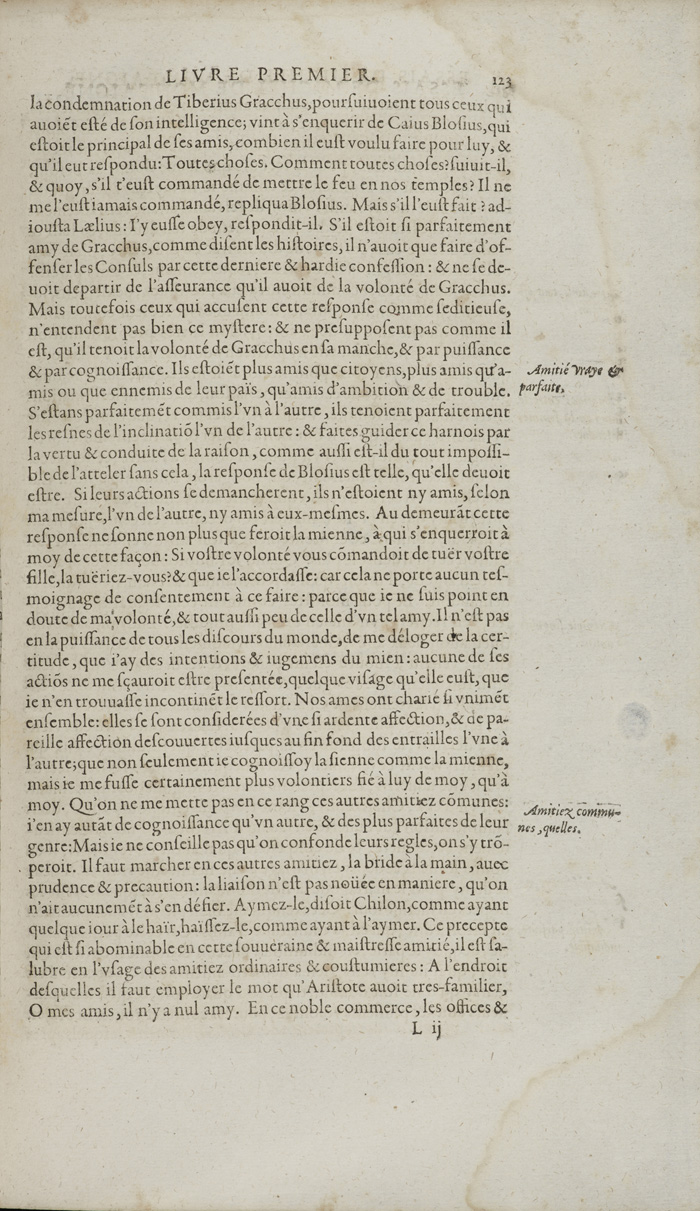 LIVRE PREMIER. 123
la condemnation de Tiberius Gracchus, pourſuiuoient tous ceux qui
auoiẽt eſté de ſon intelligence; vint à s'enquerir de Caius Bloſius, qui
eſtoit le principal de ſes amis, combien il euſt voulu faire pour luy, &
qu'il eut reſpondu: Toutes choſes. Comment toutes choſes? ſuiuit-il,
& quoy, s'il t'euſt commandé de mettre le feu en nos temples? Il ne
me l'euſt iamais commandé, repliqua Bloſius. Mais s'il l'euſt fait? ad-
iouſta Lælius: I'y euſſe obey, reſpondit-il. S'il eſtoit ſi parfaitement
amy de Gracchus, comme diſent les hiſtoires, il n'auoit que faire d'of-
fenſer les Conſuls par cette derniere & hardie confeſſion: & ne ſe de-
uoit departir de l'aſſeurance qu'il auoit de la volonté de Gracchus.
Mais toutefois ceux qui accuſent cette reſponſe comme ſeditieuſe,
n'entendent pas bien ce myſtere: & ne preſuppoſent pas comme il
eſt, qu'il tenoit la volonté de Gracchus en ſa manche, & par puiſſance
& par cognoiſſance. Ils eſtoiẽt plus amis que citoyens, plus amis qu'a-
mis ou que ennemis de leur païs, qu'amis d'ambition & de trouble.
S'eſtans parfaitemẽt commis l'vn à l'autre, ils tenoient parfaitement
les reſnes de l'inclinatiõ l'vn de l'autre: & faites guider ce harnois par
la vertu & conduite de la raiſon, comme auſſi eſt-il du tout impoſſi-
ble de l'atteler ſans cela, la reſponſe de Bloſius eſt telle, qu'elle deuoit
eſtre. Si leurs actions ſe demancherent, ils n'eſtoient ny amis, ſelon
ma meſure, l'vn de l'autre, ny amis à eux-meſmes. Au demeurãt cette
reſponſe ne ſonne non plus que feroit la mienne, à qui s'enquerroit à
moy de cette façon: Si voſtre volonté vous cõmandoit de tuër voſtre
fille, la tuëriez-vous? & que ie l'accordaſſe: car cela ne porte aucun teſ-
moignage de conſentement à ce faire: parce que ie ne ſuis point en
doute de ma volonté, & tout auſſi peu de celle d'vn tel amy. Il n'eſt pas
en la puiſſance de tous les diſcours du monde, de me déloger de la cer-
titude, que i'ay des intentions & iugemens du mien: aucune de ſes
actiõs ne me ſçauroit eſtre preſentée, quelque viſage qu'elle euſt, que
ie n'en trouuaſſe incontinẽt le reſſort. Nos ames ont charié ſi vnimẽt
enſemble: elles ſe ſont conſiderées d'vne ſi ardente affection, & de pa-
reille affection deſcouuertes iuſques au fin fond des entrailles l'vne à
l'autre; que non ſeulement ie cognoiſſoy la ſienne comme la mienne,
mais ie me fuſſe certainement plus volontiers fié à luy de moy, qu'à
moy. Qu'on ne me mette pas en ce rang ces autres amitiez cõmunes:
i'en ay autãt de cognoiſſance qu'vn autre, & des plus parfaites de leur
genre: Mais ie ne conſeille pas qu'on confonde leurs regles, on s'y trõ-
peroit. Il faut marcher en ces autres amitiez, la bride à la main, auec
prudence & precaution: la liaiſon n'eſt pas noüée en maniere, qu'on
n'ait aucunemẽt à s'en défier. Aymez-le, diſoit Chilon, comme ayant
quelque iour à le haïr, haïſſez-le, comme ayant à l'aymer. Ce precepte
qui eſt ſi abominable en cette ſouueraine & maiſtreſſe amitié, il eſt ſa-
lubre en l'vſage des amitiez ordinaires & couſtumieres: A l'endroit
deſquelles il faut employer le mot qu'Ariſtote auoit tres-familier,
O mes amis, il n'y a nul amy. En ce noble commerce, les offices &
L ij
Amitié vraye &
parfaite,
Amitiez commu-
nes, quelles.